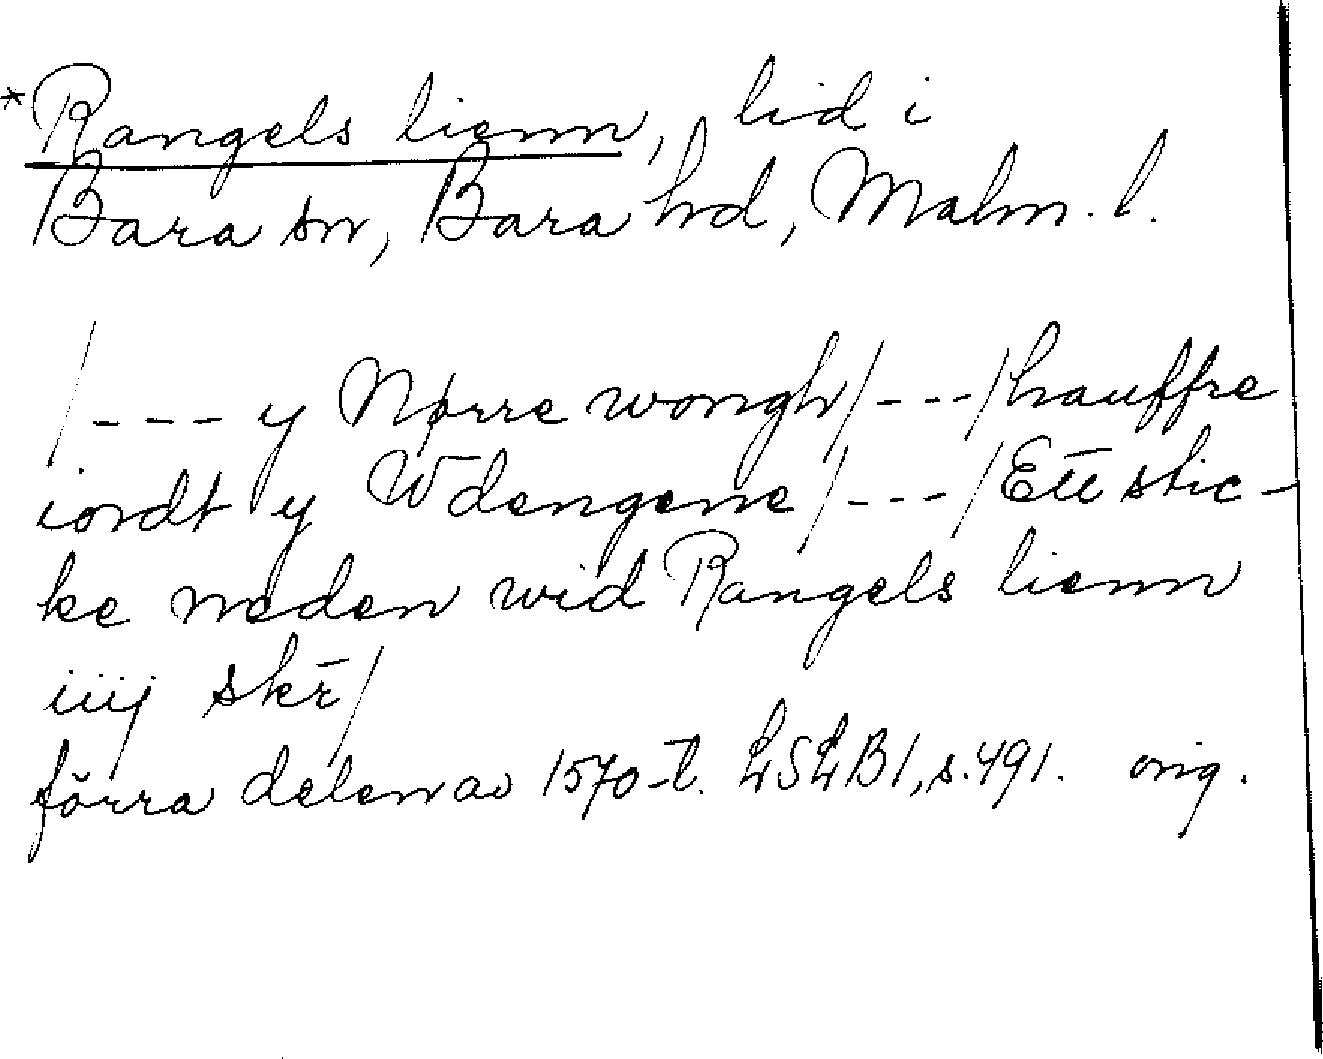 *Rangels lienn, lid i
Bara sn, Bara hd, Malm. l.
/--- y Nørre wongh/---/hauffre
iordt y Wdengene/---/Ett stic-
ke neden wid Rangels lienn
iiij skr̄/
förra delen av 1570-t. LSLB1, s. 491. orig.